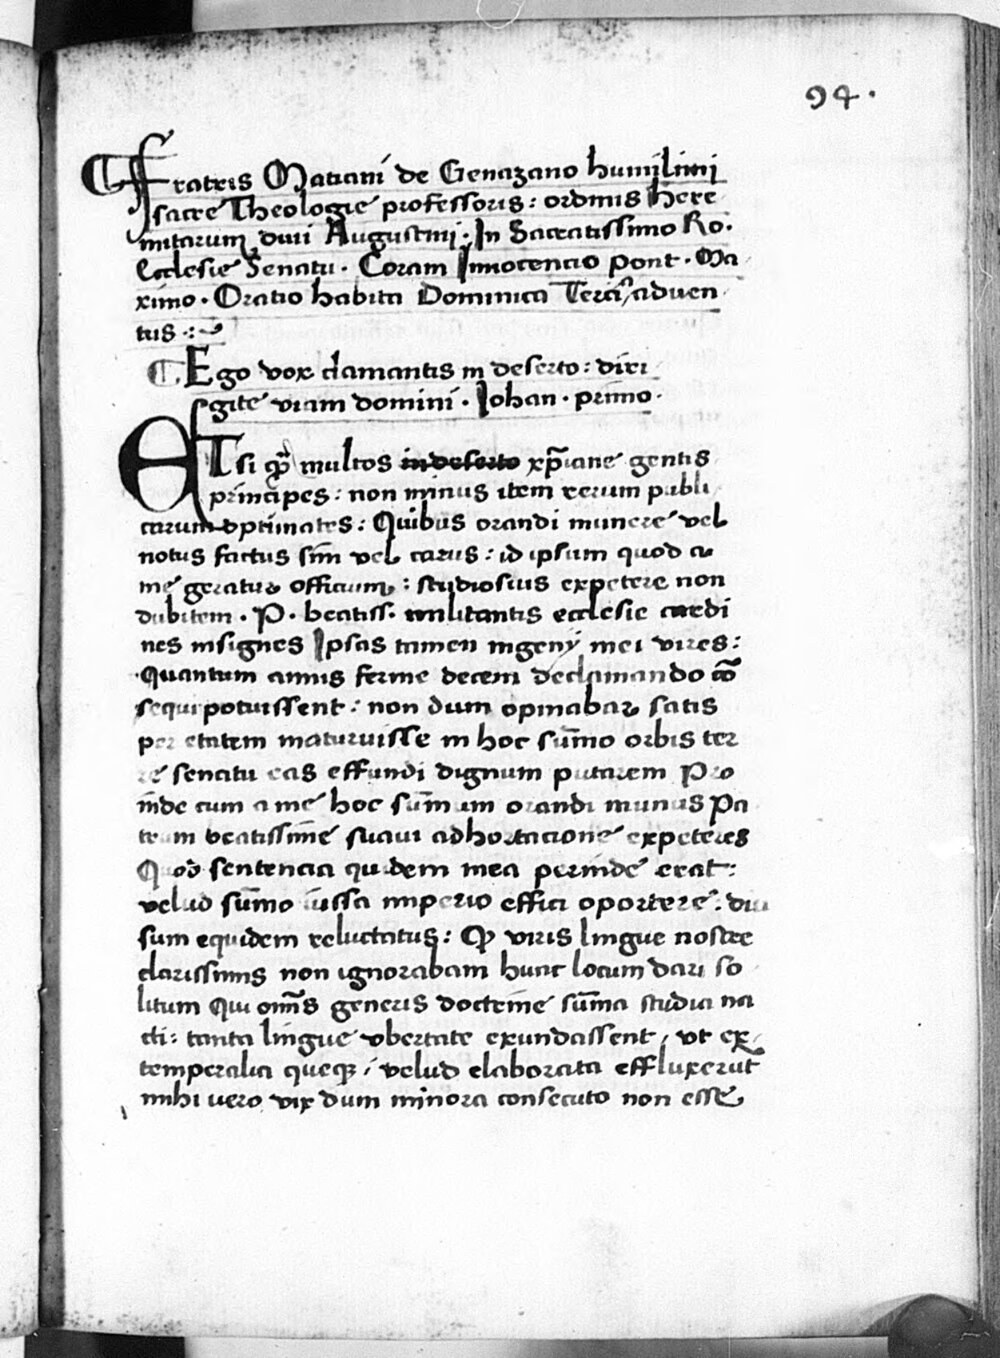 94.
Fratris Mariani de Genazano humilimi
sacre Theologie professoris: ordinis here
mitarum divi Augustini. In Sacratissimo Ro.
Ecclesie Senatu. Coram Innocencio Pont. Ma
ximo. Oratio habita Dominica Tercia adven
tus
Ego vox clamantis in deserto: diri
gite viam domini. Johan. primo.
ETsi qȝ multos in deserto xp̄iane gentis
principes: non minus item rerum publi
carum optimates: Quibus orandi munere vel
notus factus sim vel carus: id ipsum quod a
me geratur officium: studiosius expetere non
dubitem. P. beatiss. militantis ecclesie cardi
nes insignes Ipsas tamen ingenij mei vires:
Quantum annis ferme decem declamando cō
sequi potuissent: non dum opinabar satis
per etatem maturuisse in hoc sūmo orbis ter
re senatu eas effundi dignum putarem Pro
inde cum a me hoc sūmum orandi munus Pa
trum beatissime suavi adhortacione expeteres
Quod sentencia quidem mea perinde erat:
velud sūmo iussa imperio effici oportere: diu
sum equidem reluctatus: Qȝ viris lingue nostre
clarissimis non ignorabam hunc locum dari so
litum Qui om̄s generis doctrine sūma studia na
cti: tanta lingue ubertate exundassent, ut ex
temperalia queqȝ, velud elaborata effluxerūt
mihi vero vix dum minora consecuto non esse